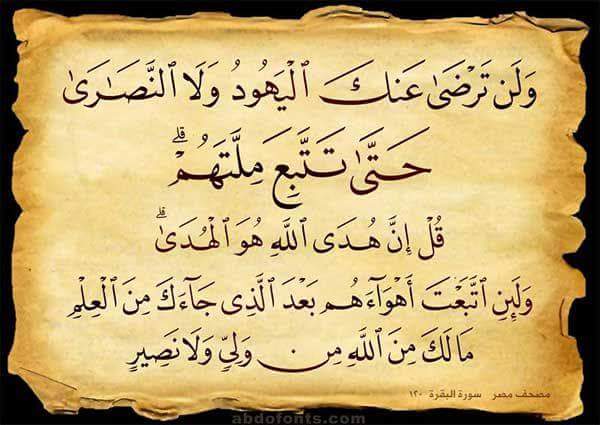 وَلَن تَرْضَىٰ عَنكَ ٱلْيَهُودُ وَلَا ٱلنَّصَـٰرَىٰ
حَتَّىٰ تَتَّبِعَ مِلَّتَهُمْ ۗ
قُلْ إِنَّ هُدَى ٱللَّهِ هُوَ ٱلْهُدَىٰ ۗ
وَلَئِنِ ٱتَّبَعْتَ أَهْوَآءَهُم بَعْدَ ٱلَّذِى جَآءَكَ مِنَ ٱلْعِلْمِ
مَا لَكَ مِنَ ٱللَّهِ مِن وَلِىٍّ وَلَا نَصِيرٍ
مصحف مصر سورة البقرة ١٢٠
abdofonts.com